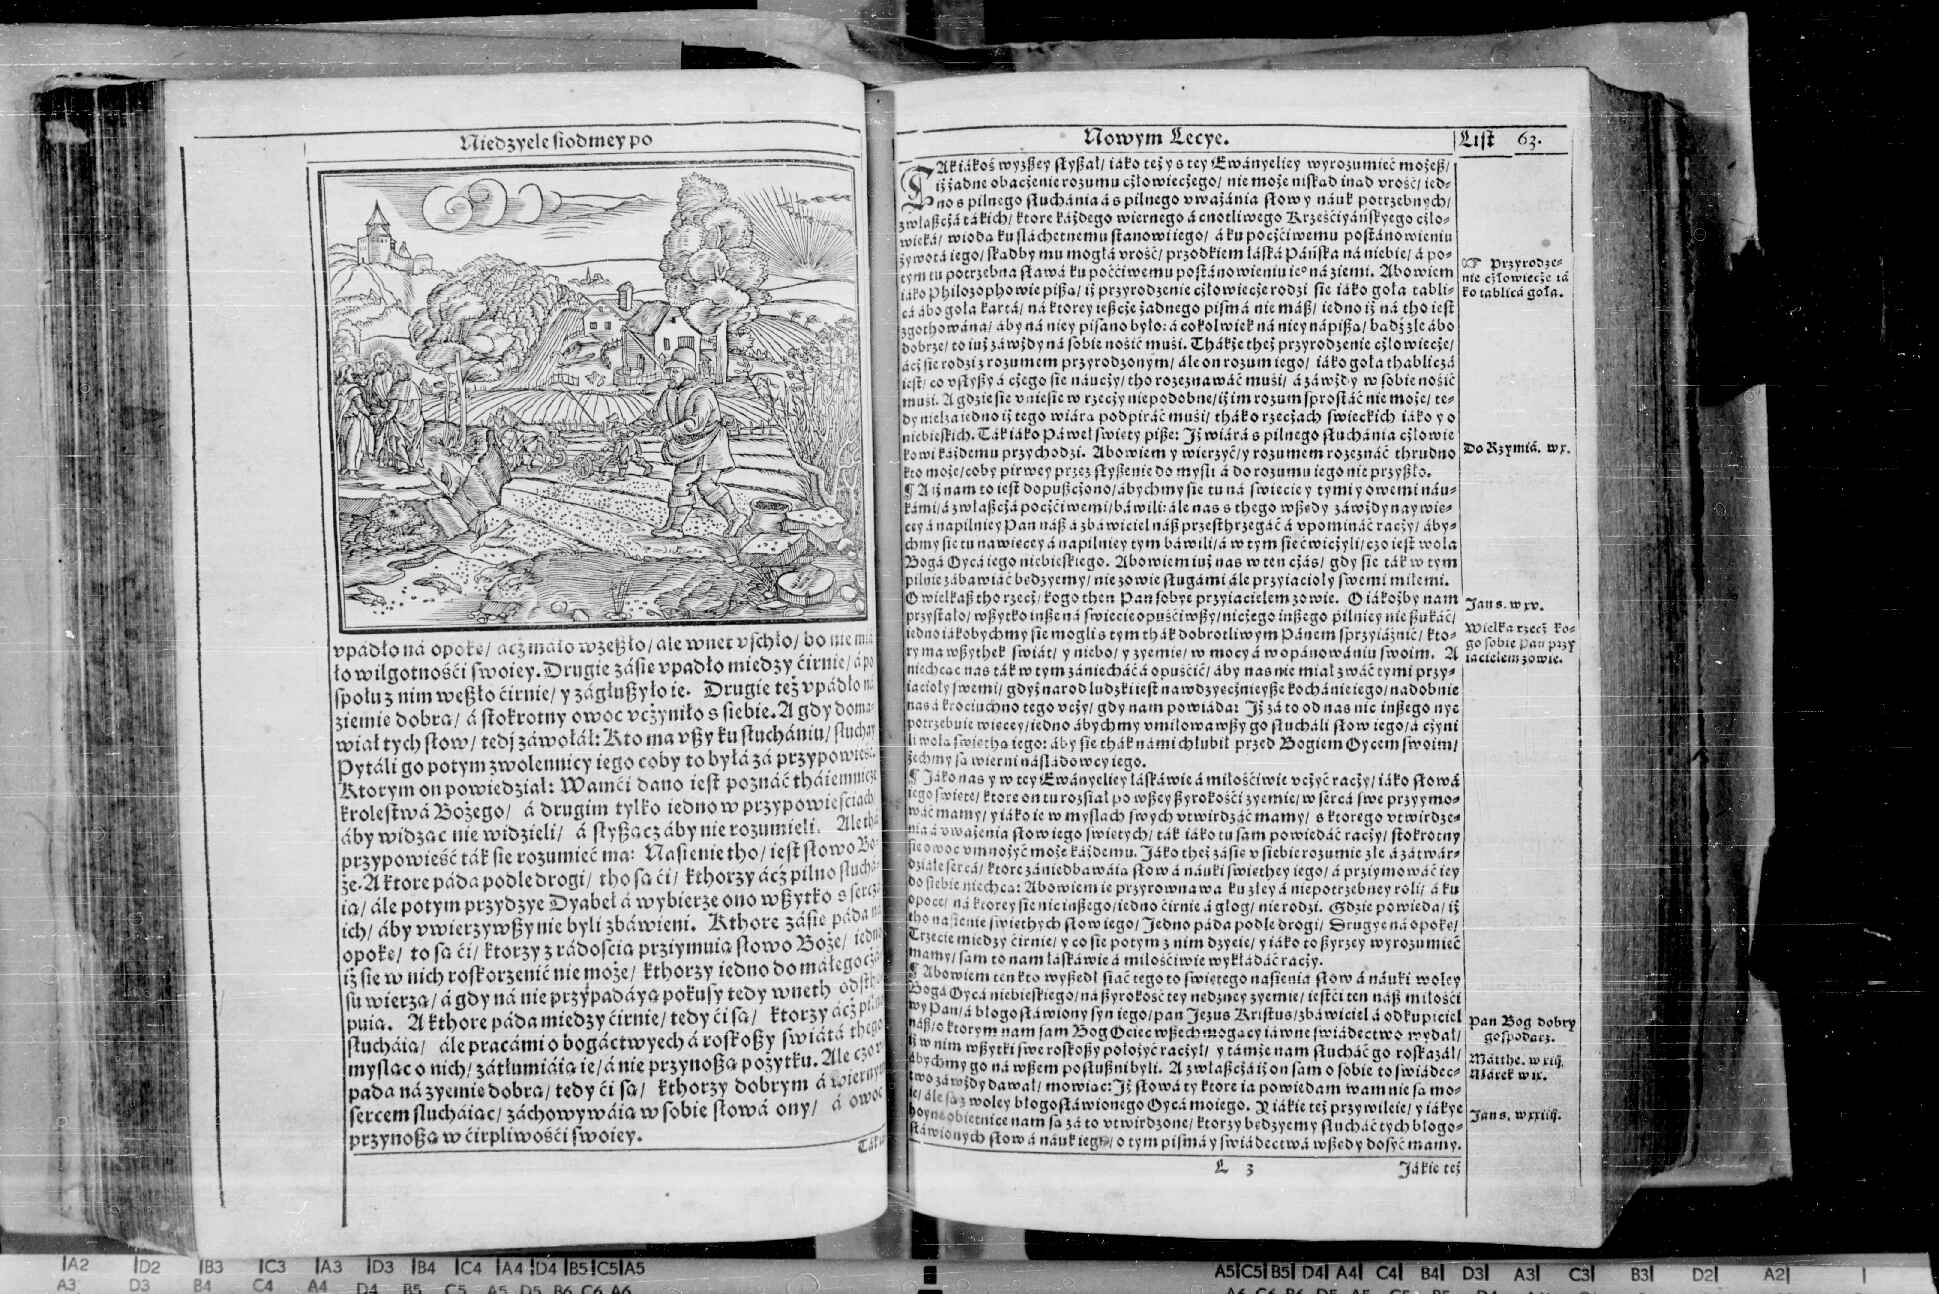 Niedzyele siodmey po
vpádło ná opokę/ ácż máło wzeßło/ ále wnet vschło/ bo nie mia
ło wilgotnośći swoiey. Drugie zásię vpádło miedzy ćirnie/ á po
społu z nim weßło ćirnie/ y zágłußyło ie. Drugie też vpádło ná
ziemię dobrą/ á stokrotny owoc vcżyniło s siebie. A gdy doma-
wiał tych słow/ tedj záwołał: Kto ma vßy ku słuchániu/ słuchay
Pytáli go potym zwolennicy iego coby to byłá zá przypowieść.
Ktorym on powiedział: Wamći dano iest poznáć tháiemnicze
krolestwá Bożego/ á drugim tylko iedno w przypowieściach
áby widząc nie widzieli/ á słyßącz áby nie rozumieli. Ale thá
przypowieść ták sie rozumieć ma: Nasienie tho/ iest słowo Bo-
że. A ktore páda podle drogi/ tho są ći/ kthorzy ácż pilno słucha-
ią/ ále potym przydzye Dyabeł á wybierze ono wßytko s sercá
ich/ áby vwierzywßy nie byli zbáwieni. Kthore zásię páda ná
opokę/ to są ći/ ktorzy z rádością prziymuią słowo Boże/ iedno
iż sie w nich roskorzenić nie może/ kthorzy iedno do máłego cżá
su wierzą/ á gdy ná nie przypadáyą pokusy tedy wneth odsthę
puią. A kthore páda miedzy ćirnie/ tedy ći są/ ktorzy ácż pilno
słucháią/ ále pracámi o bogáctwyech á roskoßy świátá thego
mysląc o nich/ zátłumiáią ie/ á nie przynoßą pożytku. Ale czo
páda ná zyemię dobrą/ tedy ći są/ kthorzy dobrym á wiernym
sercem słucháiąc/ záchowywáią w sobie słowá ony/ á owoc
przynoßą w ćirpliwośći swoiey.
Ták iá
Nowym Lecye.
List 63.
TAk iákoś wyżßey słyßał/ iáko też y s tey Ewányeliey wyrozumieć możeß/
iż żadne obacżenie rozumu cżłowiecżego/ nie może niskąd inąd vrość/ ied-
no s pilnego słuchánia á s pilnego vważánia słow y náuk potrzebnych/
zwłaßcżá tákich/ ktore káżdego wiernego á cnotliwego Krześćiyáńskyego cżło-
wieká/ wiodą ku sláchetnemu stanowi iego/ á ku pocżćiwemu postánowieniu
żywotá iego/ skądby mu mogłá vrość/ przodkiem łáská Páńska ná niebie/ á po-
tym tu potrzebna sława ku poććiwemu postánowieniu ieº ná ziemi. Abowiem
iáko Philozophowie pißą/ iż przyrodzenie cżłowiecże rodzi się iáko goła tabli-
cá ábo goła kartá/ ná ktorey ießcże żadnego pismá nie máß/ iedno iż ná tho iest
zgothowána/ áby ná niey pisano było: á cokolwiek ná niey nápißą/ bądź źle ábo
dobrze/ to iuż záwżdy ná sobie nośić muśi. Thákże theż przyrodzenie cżłowiecże/
ácż sie rodzi z rozumem przyrodzonym/ ále on rozum iego/ iáko goła thablicżá
iest/ co vsłyßy á cżego sie náucży/ tho rozeznawáć muśi/ á záwżdy w sobie nośić
muśi. A gdzie sie vniesie w rzecży niepodobne/ iż im rozum sprostáć nie może/ te-
dy nielza iedno iż tego wiárá podpiráć muśi/ thák o rzecżach swieckich iáko y o
niebieskich. Ták iáko Páweł święty piße: Iż wiárá s pilnego słuchánia cżłowie
kowi káżdemu przychodzi. Abowiem y wierzyć/ y rozumem rozeznáć thrudno
kto może/ coby pirwey przez słyßenie do mysli á do rozumu iego nie przyßło.
¶ A iż nam to iest dopußcżono/ ábychmy sie tu ná świecie y tymi y owemi náu-
kámi/ á zwłaßcżá pocżćiwemi/ báwili: ále nas s thego wßędy záwżdy naywię-
cey á napilniey Pan náß á zbáwiciel náß przesthrzegáć á vpomináć racży/ áby-
chmy sie tu nawięcey á napilniey tym báwili/ á w tym sie ćwicżyli/ czo iest wola
Bogá Oycá iego niebieskiego. Abowiem iuż nas w ten cżás/ gdy sie ták w tym
pilnie zábawiáć będzyemy/ nie zowie sługámi ále przyiacioły swemi miłemi.
O wielkaß tho rzecż/ kogo then Pan sobye przyiacielem zowie. O iákożby nam
przystało/ wßytko inße ná świecie opuśćiwßy/ nicżego inßego pilniey nie ßukáć/
iedno iákobychmy sie mogli s tym thák dobrotliwym Pánem sprzyiáźnić/ kto-
ry ma wßythek świát/ y niebo/ y zyemię/ w mocy á w opánowániu swoim. A
niechcąc nas ták w tym zániecháć á opuśćić/ áby nas nie miał zwáć tymi przy-
iacioły swemi/ gdyż narod ludzki iest nawdzyęcżnieyße kochánie iego/ nadobnie
nas á krociuchno tego vcży/ gdy nam powiáda: Iż zá to od nas nic inßego nye
potrzebuie więcey/ iedno ábychmy vmiłowawßy go słucháli słow iego/ á cżyni
li wolą świethą iego: áby sie thák námi chlubił przed Bogiem Oycem swoim/
żechmy są wierni násládowcy iego.
¶ Jáko nas y w tey Ewányeliey łáskáwie á miłośćiwie vcżyć racży/ iáko słowá
iego święte/ ktore on tu rozsiał po wßey ßyrokośći zyemie/ w sercá swe przyymo-
wáć mamy/ y iáko ie w myslach swych vtwirdzáć mamy/ s ktorego vtwirdze-
nia á vważenia słow iego świętych/ ták iáko tu sam powiedáć racży/ stokrotny
sie owoc vmnożyć może káżdemu. Jáko theż zásię v siebie rozumie źle á zátwár-
dziáłe sercá/ ktore zániedbawáią słow á náuki swiethey iego/ á prziymowáć iey
do siebie niechcą: Abowiem ie przyrownawa ku złey á niepotrzebney roli/ á ku
opoce/ ná ktorey sie nic inßego/ iedno ćirnie á głog/ nie rodzi. Gdzie powieda/ iż
tho nasienie świethych słow iego/ Jedno páda podle drogi/ Drugye ná opokę/
Trzecie miedzy ćirnie/ y co sie potym z nim dzyeie/ y iáko to ßyrzey wyrozumieć
mamy/ sam to nam łáskáwie á miłośćiwie wykłádáć racży.
¶ Abowiem ten kto wyßedł siać tego to świętego nasienia słow á náuki woley
Bogá Oycá niebieskiego/ ná ßyrokość tey nędzney zyemie/ iestći ten náß miłośći
wy Pan/ á błogosłáwiony syn iego/ pan Jezus Kristus/ zbáwiciel á odkupiciel
náß/ o ktorym nam sam Bog Ociec wßechmogący iáwne świádectwo wydał/
iż w nim wßytki swe roskoßy położyć racżył/ y támże nam słucháć go roskazał/
ábychmy go ná wßem posłußni byli. A zwłaßcżá iż on sam o sobie to świádec-
two záwżdy dawał/ mowiąc: Iż słowá ty ktore ia powiedam wam nie są mo-
ie/ ále są z woley błogosłáwionego Oycá moiego. Y iákie też przywileie/ y iákye
hoyne obietnice nam są zá to vtwirdzone/ ktorzy będzyemy słucháć tych błogo-
słáwionych słow á náuk iego/ o tym pismá y świádectwá wßędy dosyć mamy.
L 3
Jákie też
☞ Przyrodze-
nie cżłowiecże iá
ko tablicá goła.
Do Rzymiá. w x.
Jan s. w xv.
Wielka rzecż ko-
go sobie Pan przy
iacielem zowie.
Pan Bog dobry
gospodarz.
Mátthe. w xiij.
Márek w ix.
Jan s. w xxiiij.